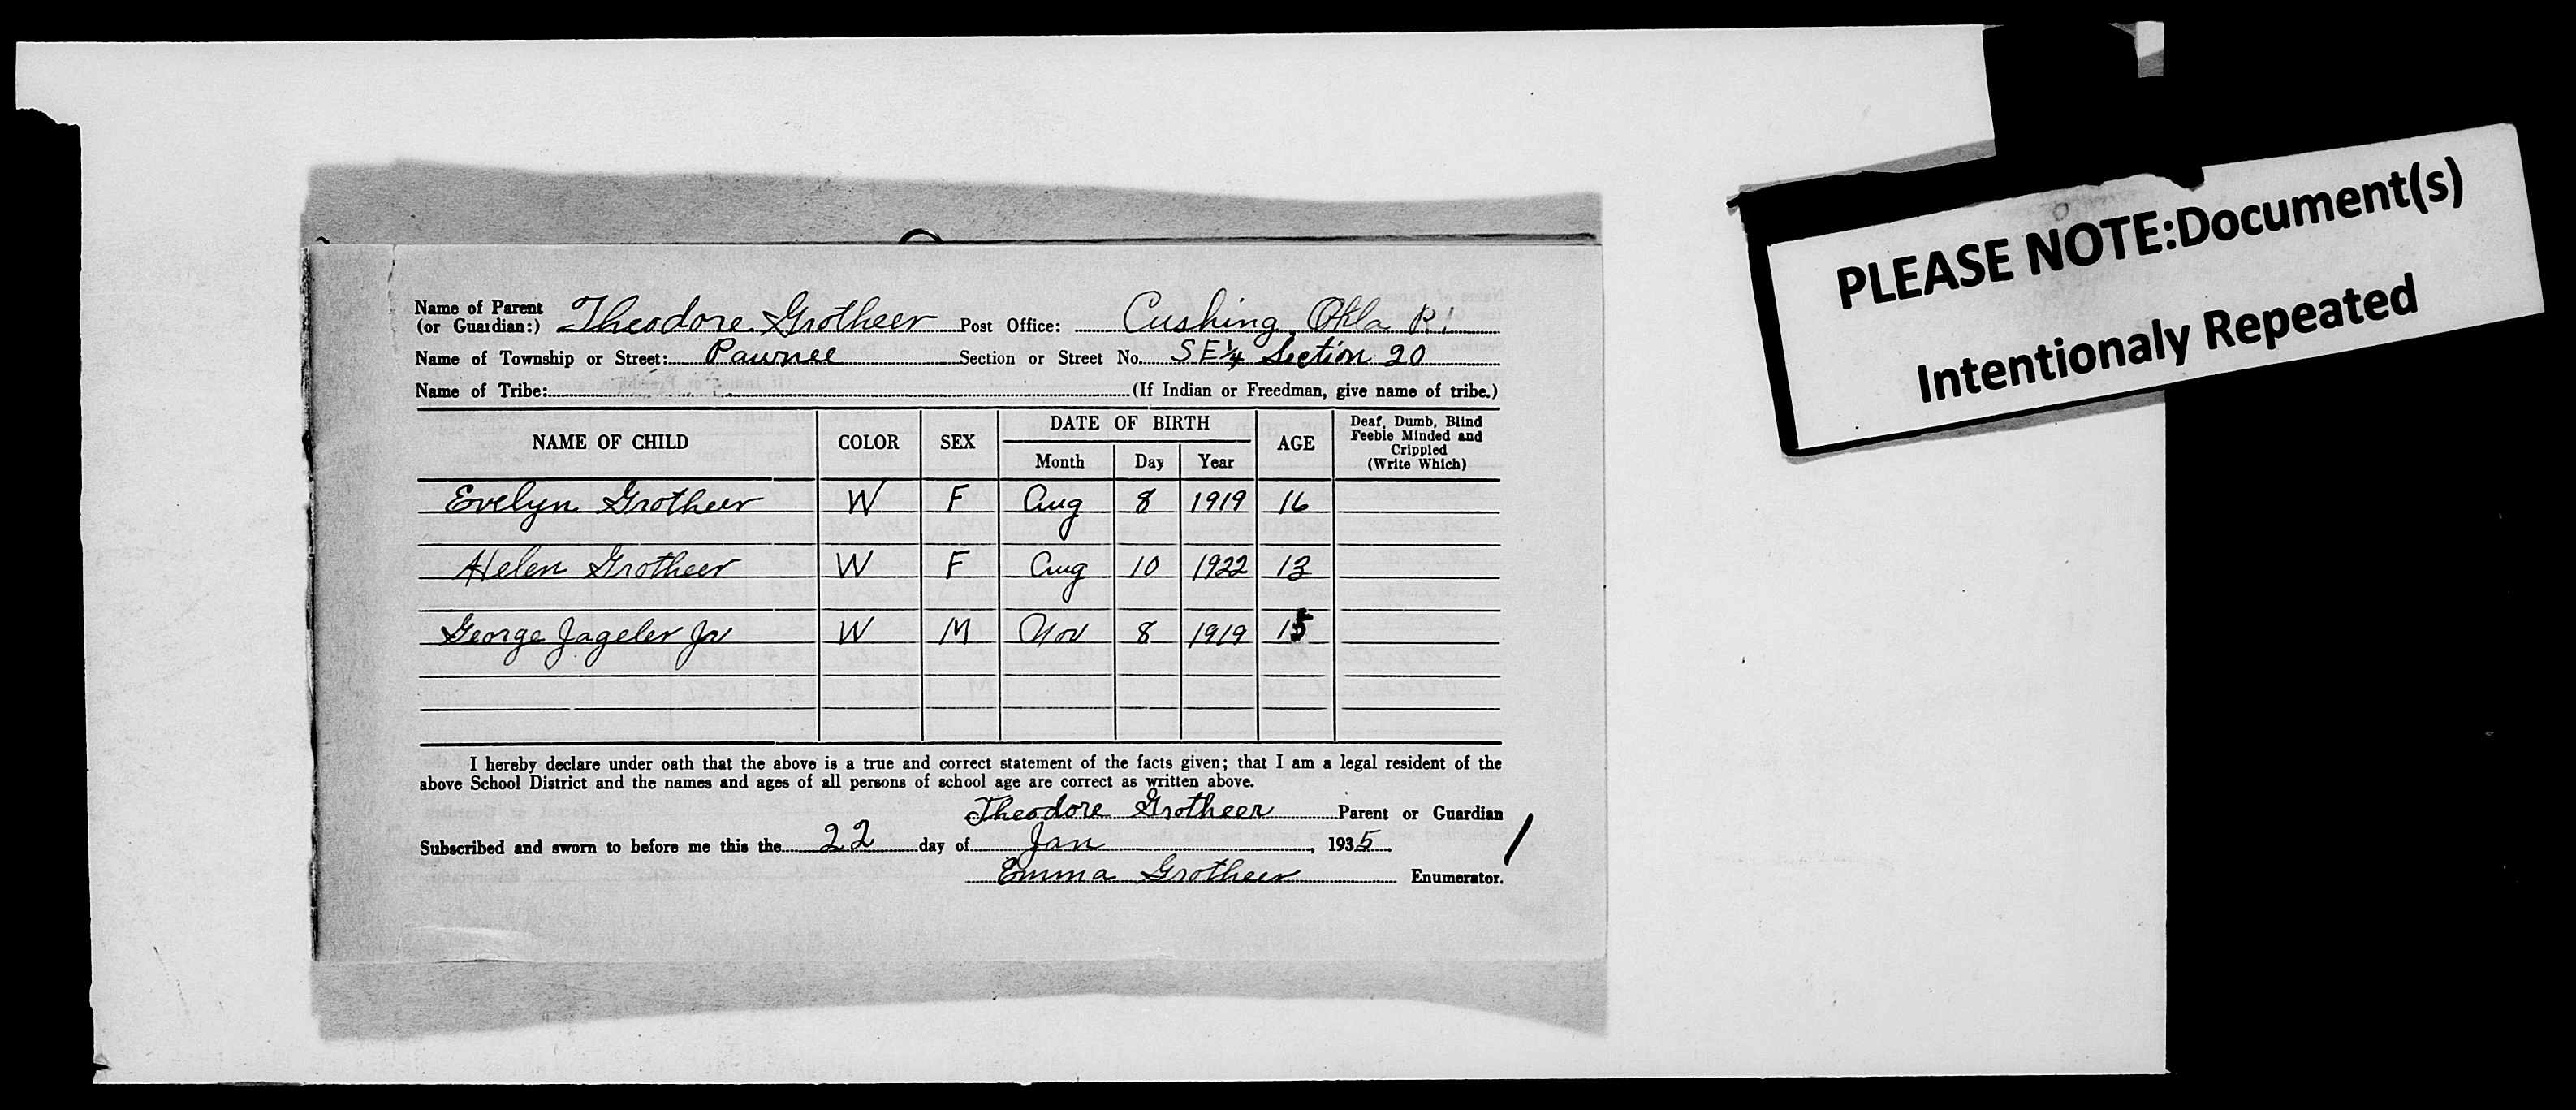 Name of Parent
(or Guardian:) Theodore Grotheer Post Office: Cushing, Okla R1
Name of Township or Street: Pawnee Section or Street No. SE 1/4 Section 20
Name of Tribe: (If Indian or Freedman, give name of tribe.)
NAME OF CHILD COLOR SEX DATE OF BIRTH AGE Deaf, Dumb, Blind
Feeble Minded and
Crippled
(Write Which)
Month Day Year
Evelyn Grotheer W F Aug 8 1919 16
Helen Grotheer W F Aug 10 1922 13
George Jageler Jr W M Nov 8 1919 15
I hereby declare under oath that the above is a true and correct statement of the facts given; that I am a legal resident of the
above School District and the names and ages of all persons of school age are correct as written above.
Theodore Grotheer Parent or Guardian
Subscribed and sworn to before me this the 22 day of Jan, 1935.
Emma Grotheer Enumerator.
PLEASE NOTE:Document(s)
Intentionaly Repeated